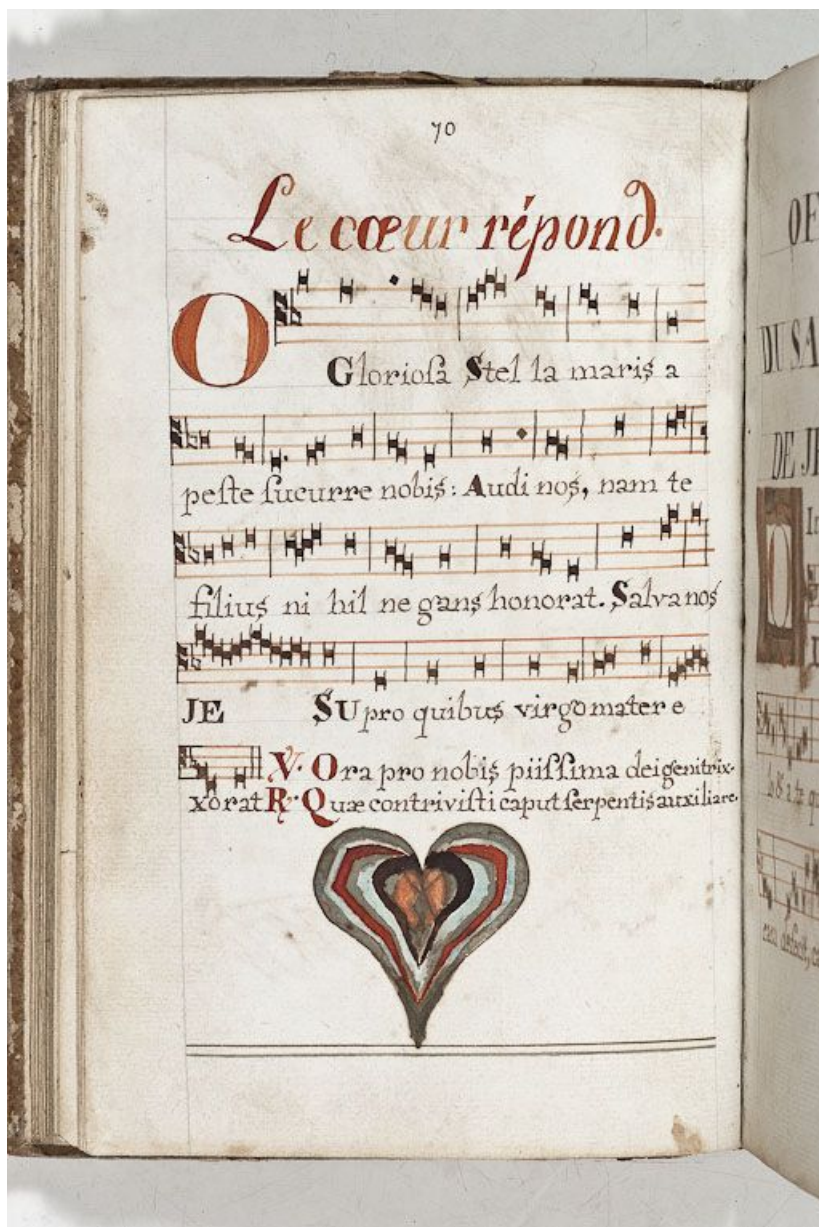 70
Le cœur répond.
O Glorioſa Stel la maris a
peſte ſucurre nobis: Audi nos, nam te
filius ni hil ne gans honorat. Salva nos
JE SU pro quibus virgo mater e
V. Ora pro nobis piiſſima dei genitrix.
xorat R. Quæ contriviſti caput ſerpentis auxiliare.
OF
DU SA
DE JE
O